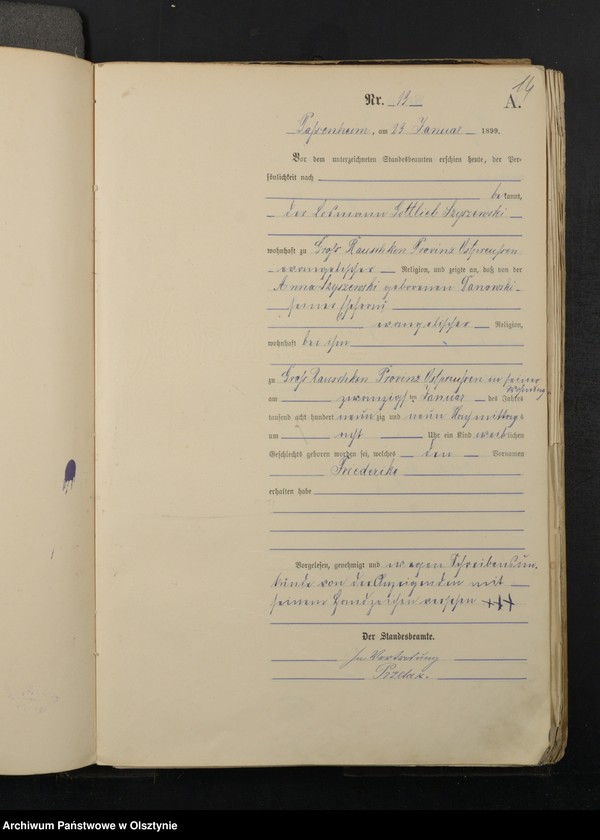 14
Nr. 13
A.
Passenheim, am 23 Januar 1899.
Vor dem unterzeichneten Standesbeamten erschien heute, der Per-
sönlichkeit nach
be kannt,
der Losmann Gottlieb Szyszewski
wohnhaft zu Groß Rauschken Provinz Ostpreußen
evangelischer Religion, und zeigte an, daß von der
Anna Szyszewski geborenen Danowski
seiner Ehefrau
evangelischer Religion,
wohnhaft bei ihm
zu Groß Rauschken Provinz Ostpreußen in seiner
Wohnung
am zwanzigsten Januar des Jahres
tausend acht hundert neun zig und neun Nachmittags
um acht Uhr ein Kind weiblichen
Geschlechts geboren worden sei, welches den Vornamen
Friederike
erhalten habe
Vorgelesen, genehmigt und wegen Schreibensun-
kunde von dem Anzeigenden mit
seinem Handzeichen versehen +++
Der Standesbeamte.
In Vertretung
Archiwum Państwowe w Olsztynie